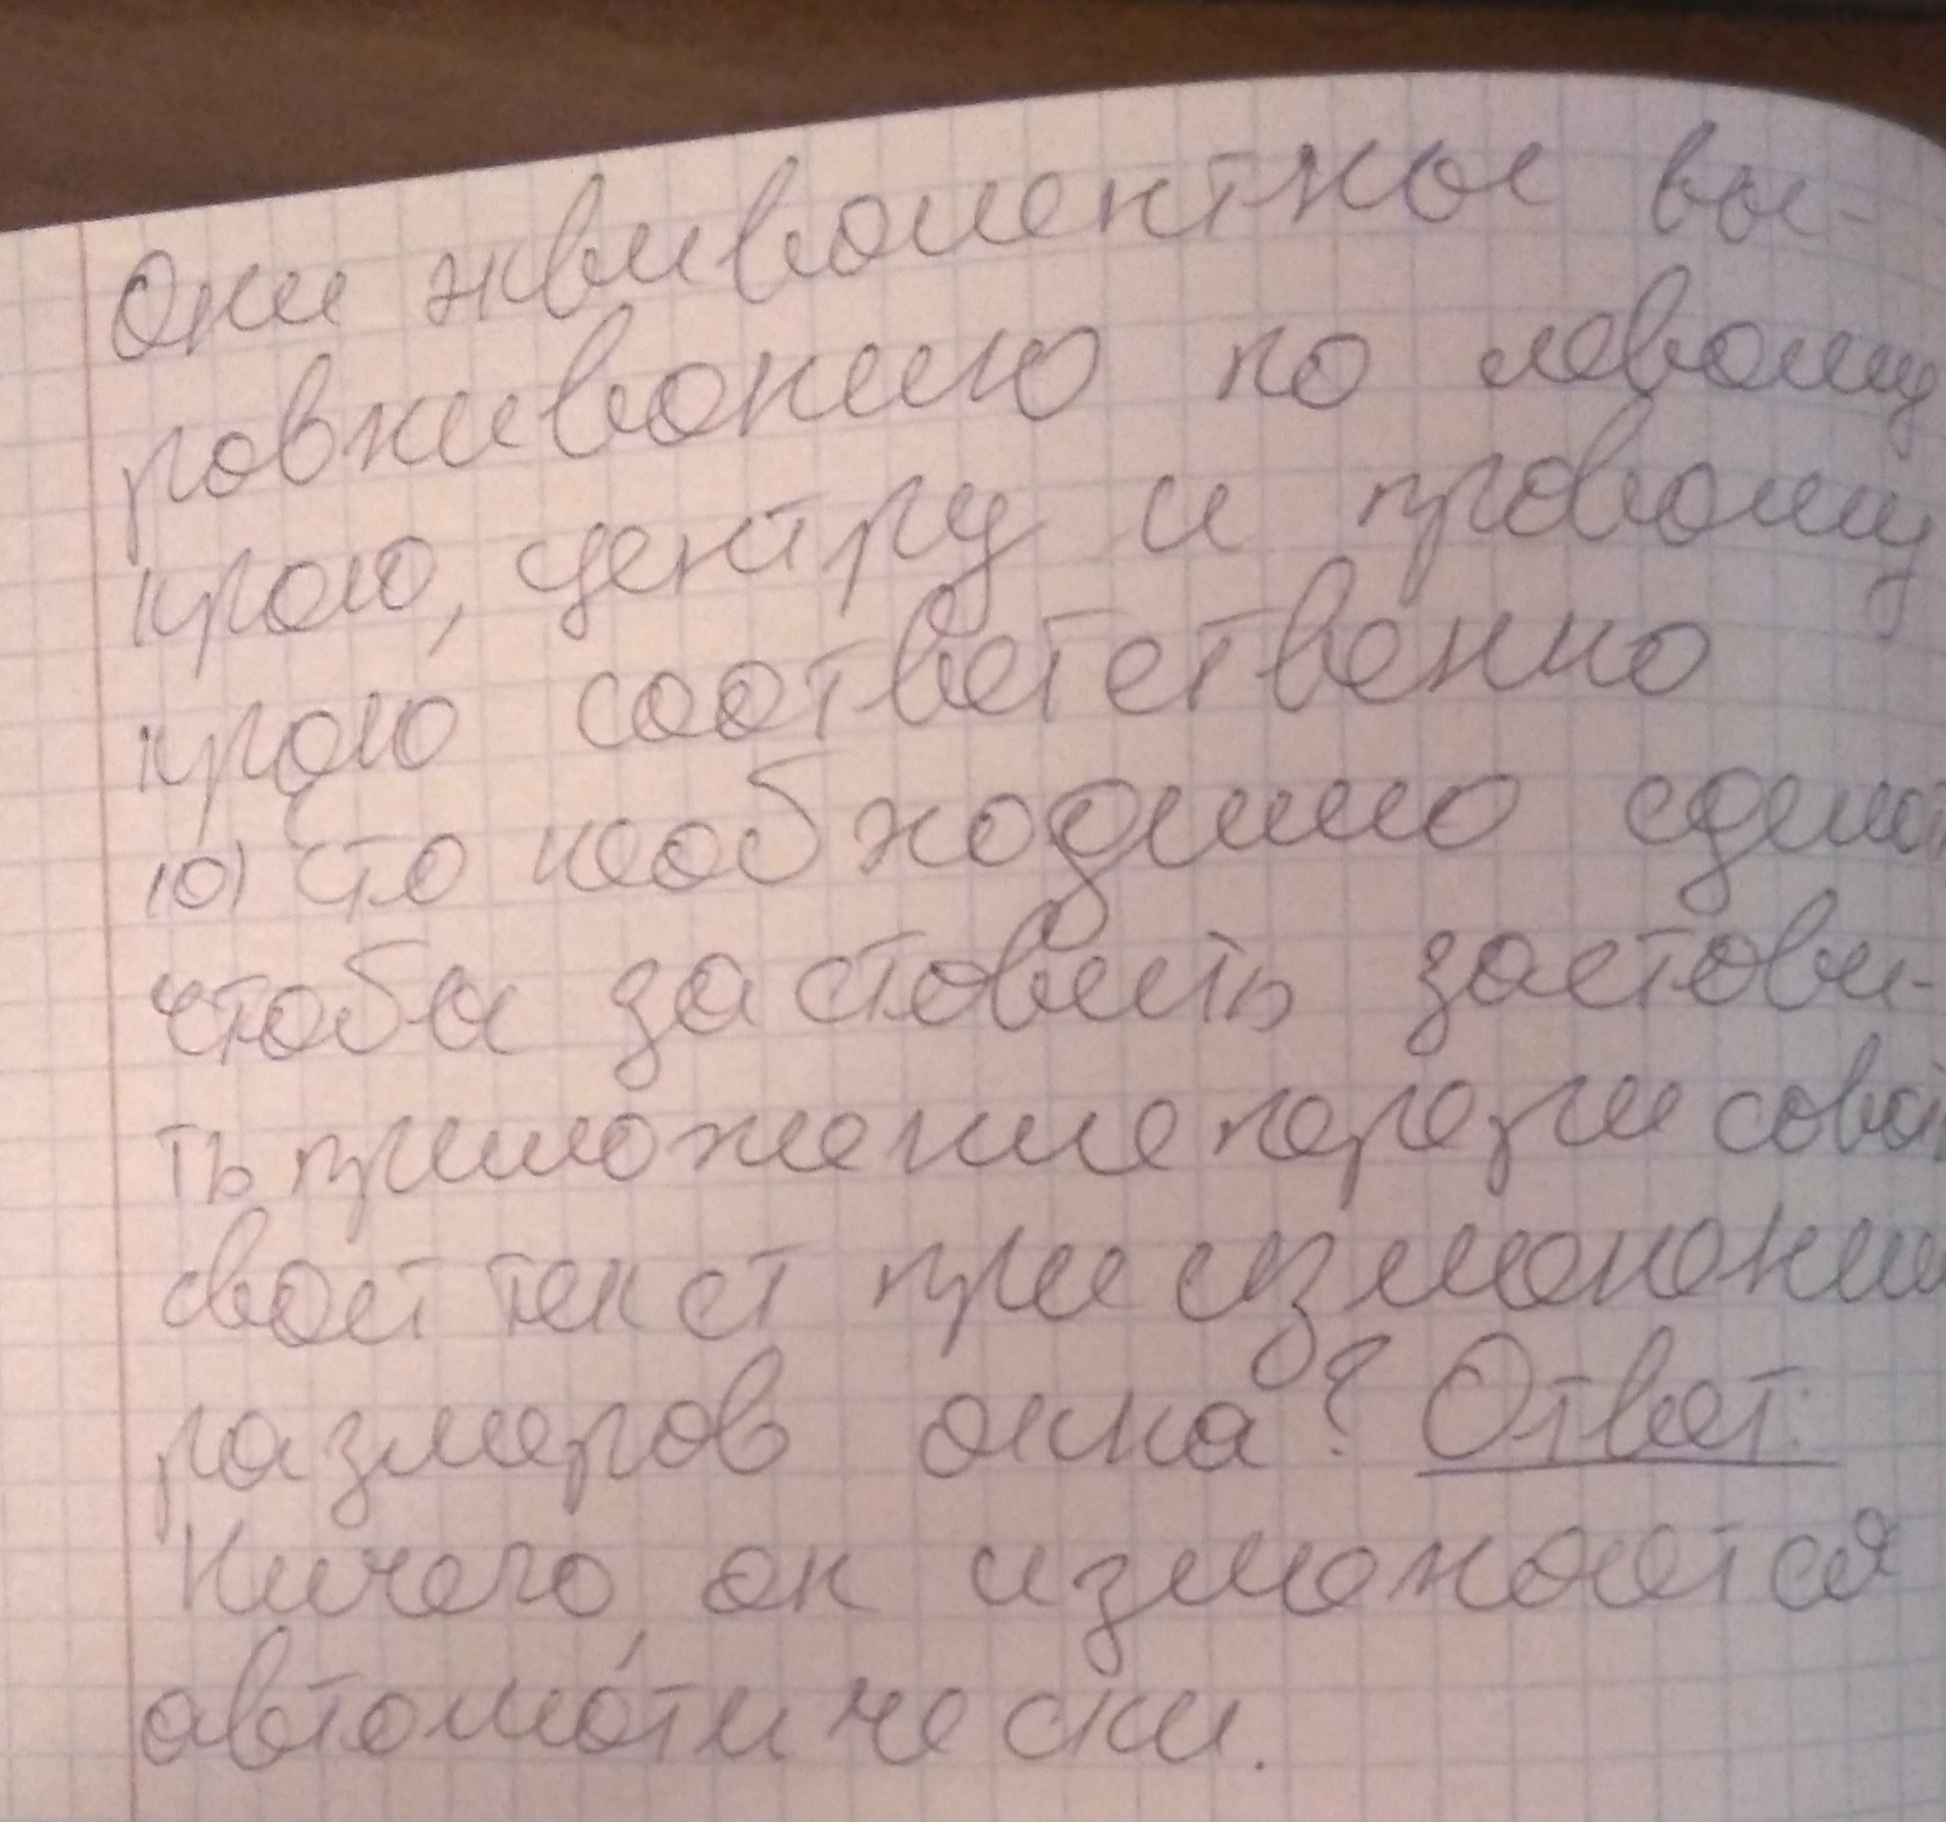 Они эквивалентны вы-
равниванию по левому
краю, центру и правому
краю соответственно
10) Что необходимо сделат
чтобы заставить застави-
ть приложение перерисоват
свой текст при изменении
размеров окна? Ответ:
Ничего, он изменяется
автоматически.